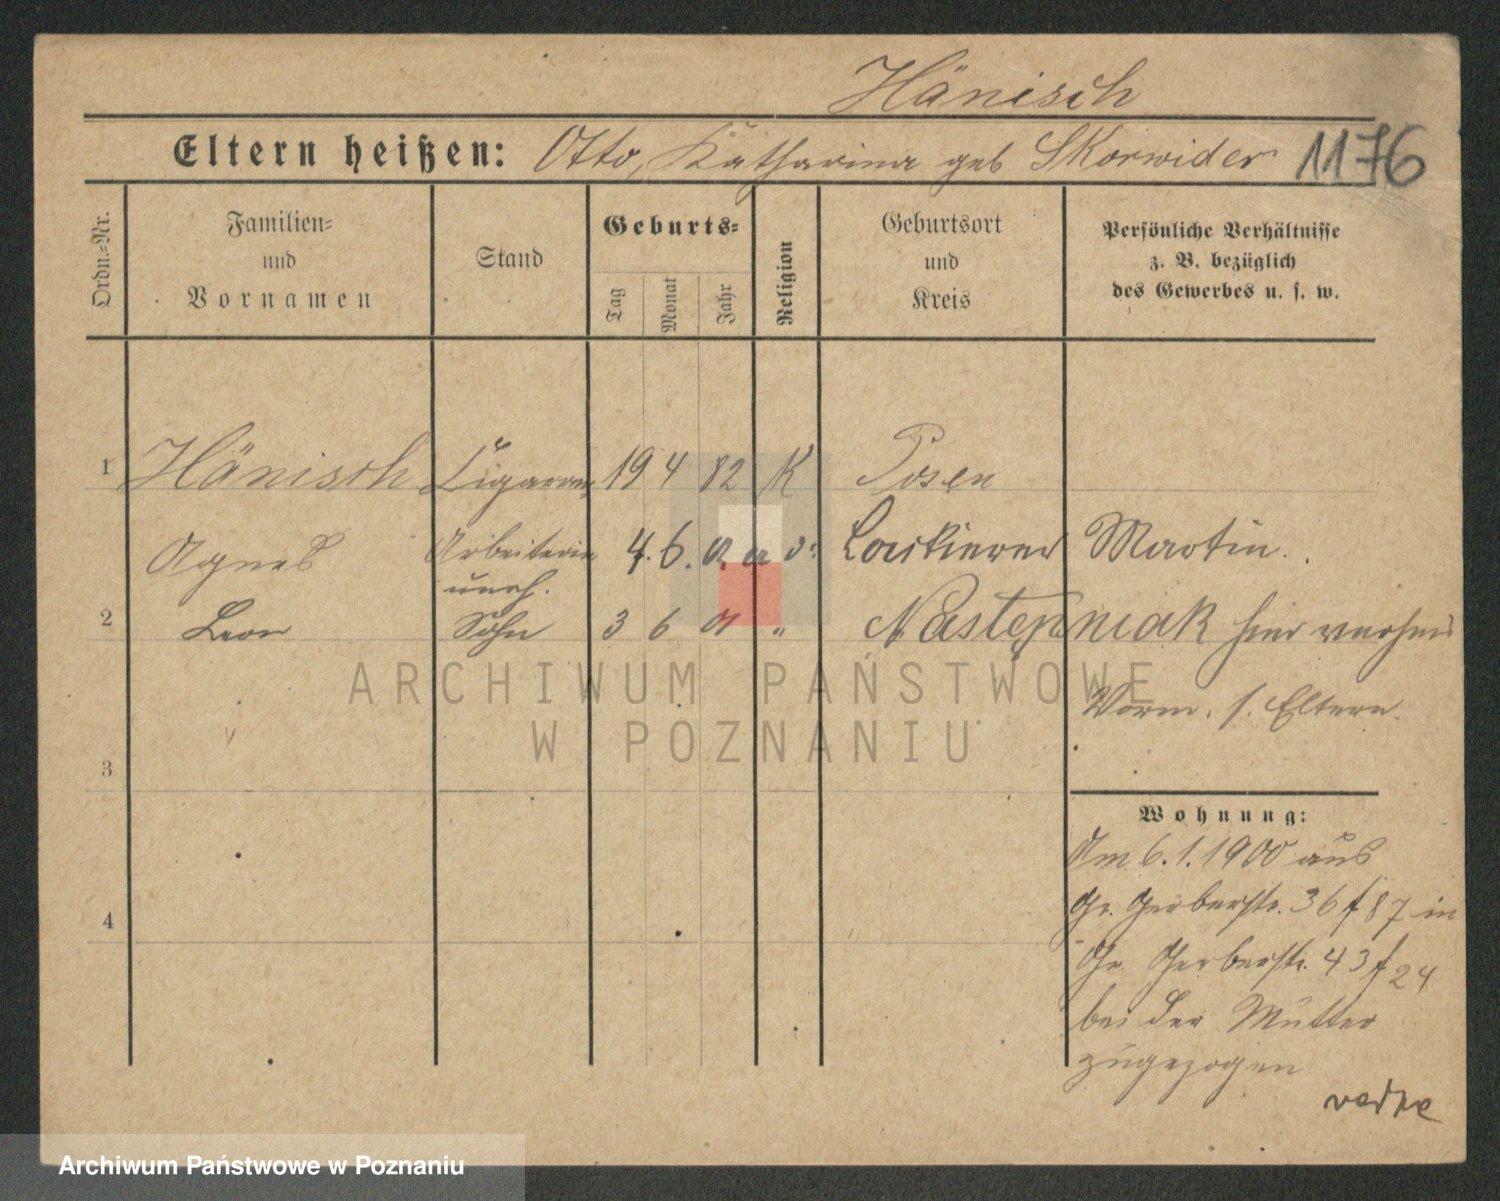 Hänisch
Eltern heißen: Otto, Katharina geb Skorwider 1176
Ordn.=Nr.
Familien=
und
Vornamen
Stand
Geburts=
Tag
Monat
Jahr
Religion
Geburtsort
und
Kreis
Persönliche Verhältnisse
z. B. bezüglich
des Gewerbes u. s. w.
1 Hänisch Cigarren 19 4 82 K Posen
Agnes Arbeiterin 4. 6. Martin.
uneh.
2 Leon Sohn 3 6 " Nastepniak hier
Vorm. s. Eltern.
3
Wohnung:
Am 6.1.1900 aus
Gr. Gerberstr. 36 f 87 in
4
Gr. Gerberstr. 43 f 24
bei der Mutter
zugezogen
ARCHIWUM PAŃSTWOWE
W POZNANIU
Archiwum Państwowe w Poznaniu